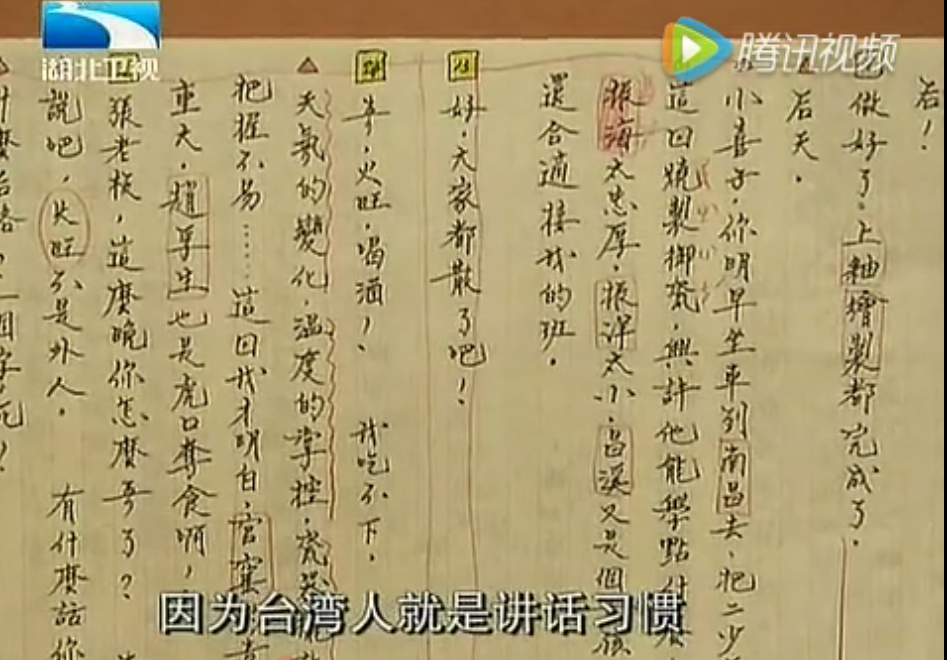 湖北卫视
腾讯视频
后！
做好了。上釉繪製都完成了。
后天。
小喜子，你明早坐車到南昌去，把二少
這回燒製御瓷，興許他能學點什麼
振海太忠厚，振洋太小，昌溪又是個孩
還合適接我的班。
好，大家都散了吧！
哥，火旺，喝酒！、我吃不下，
天氣的變化，溫度的掌控，瓷器
把握不易……這回我才明白，官窯
重大，趙孚生也是虎口奪食啊，
張老板，這麼晚你怎麼哥了？
說吧，火旺不是外人。有什麼話你
什麼后路
因为台湾人就是讲话习惯